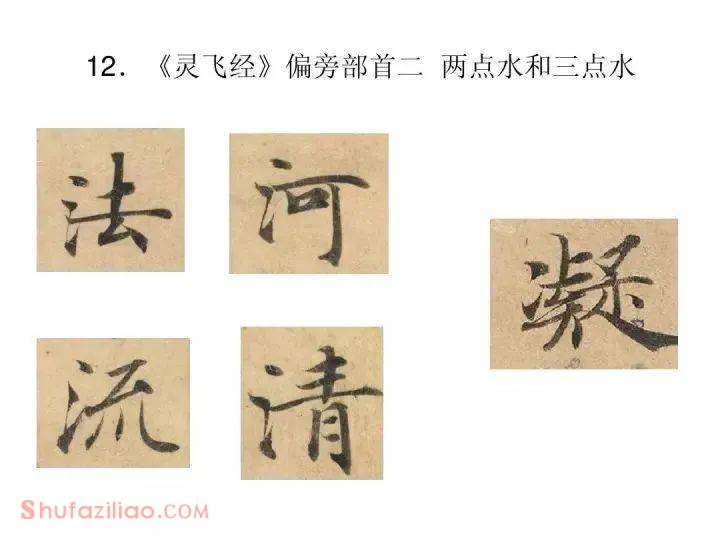 12．《灵飞经》偏旁部首二 两点水和三点水
法 河
凝
流 清
Shufaziliao.com